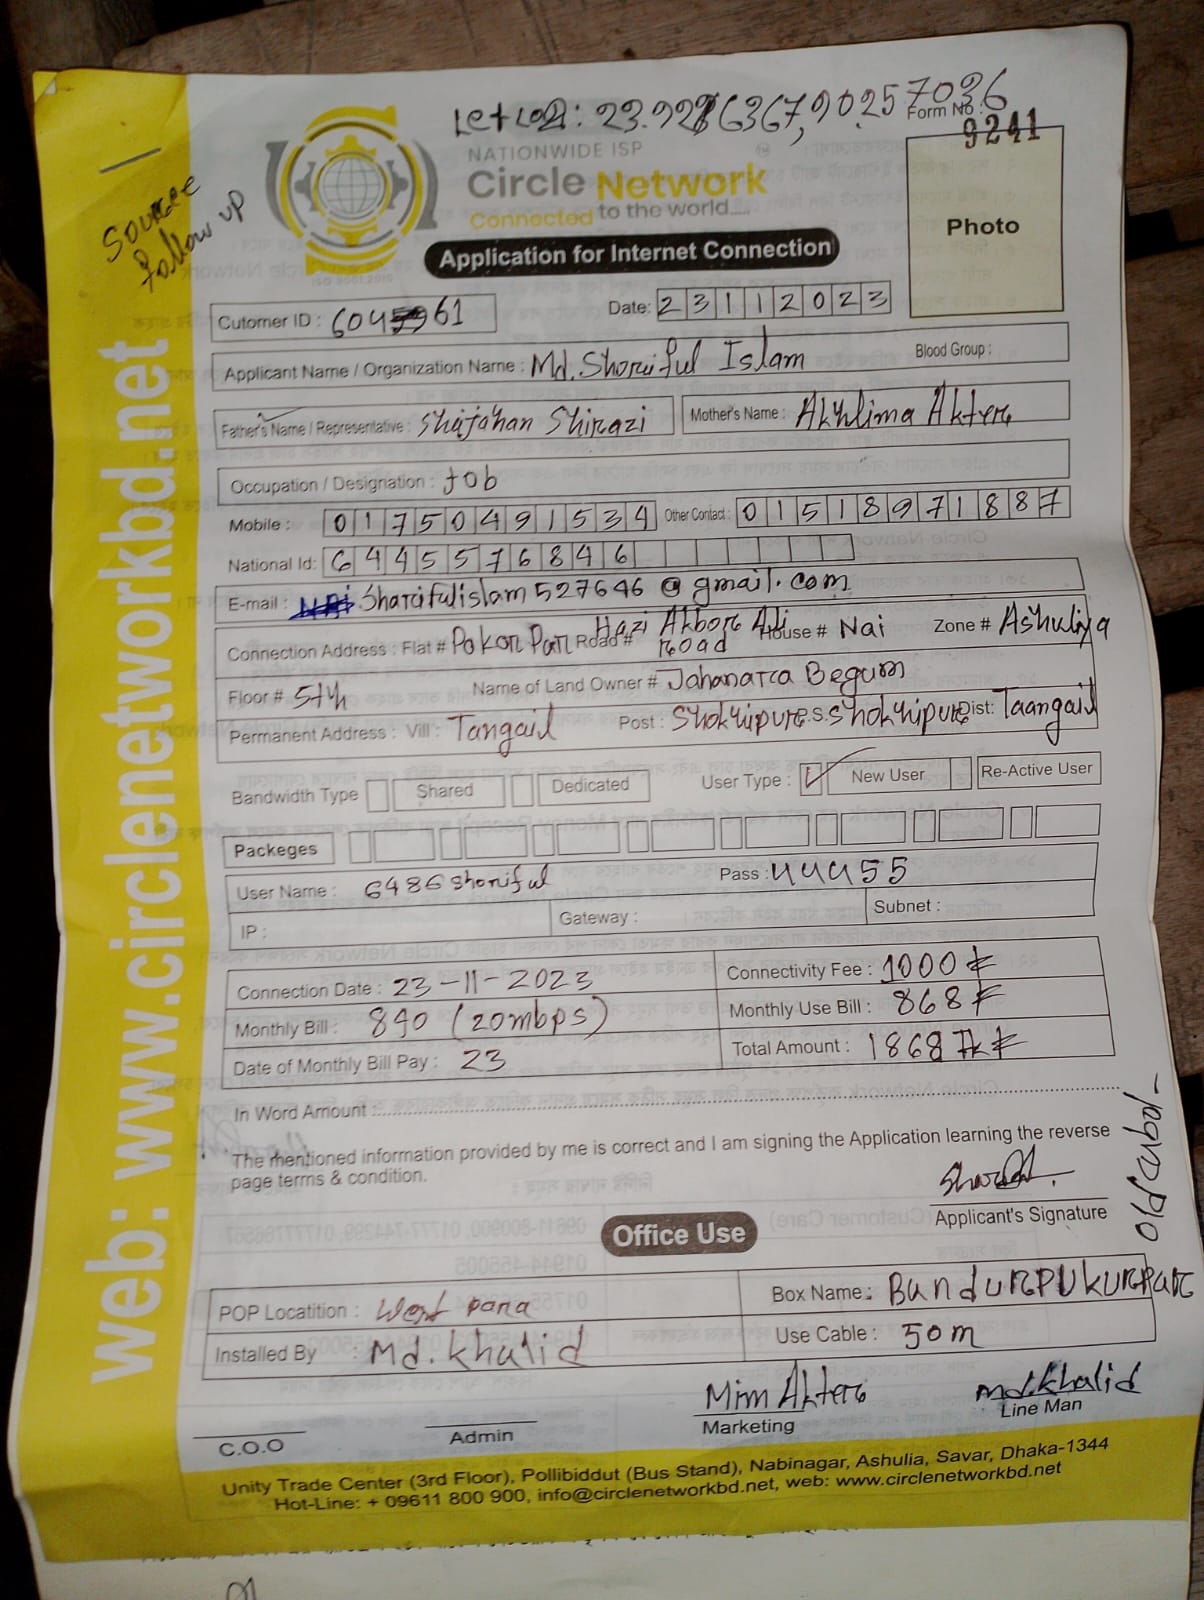 23.9286367, 90.257036
Form No :
9241
NATIONWIDE ISP
Circle Network
Connected to the world.....
Source
follow up
ISO 9001:2015
Application for Internet Connection
Photo
Cutomer ID : 604 61
Date: 23112023
Applicant Name / Organization Name : Md. Shoriful Islam
Blood Group :
Father's Name / Representative : Shajahan Shirazi
Mother's Name : Akhlima Akter
Occupation / Designation : Job
Mobile : 01750491534 Other Contact : 01518971887
National Id: 6445576846
E-mail : Sharifulislam527646@gmail.com
Connection Address : Flat # Pokor Par Road # Hazi Akbor Ali Road House # Nai Zone # Ashuliya
Floor # 5th Name of Land Owner # Jahanara Begum
Permanent Address : Vill : Tangail Post : Shokhipur P.S: Shokhipur Dist: Taangail
Bandwidth Type Shared Dedicated User Type : New User Re-Active User
Packeges
User Name : 6486 shoriful Pass : uuu55
IP : Gateway : Subnet :
Connection Date : 23-11-2023 Connectivity Fee : 1000
Monthly Bill : 840 (20mbps) Monthly Use Bill : 868
Date of Monthly Bill Pay : 23 Total Amount : 1868 Tk
In Word Amount :
The mentioned information provided by me is correct and I am signing the Application learning the reverse
page terms & condition.
Applicant's Signature
Office Use
POP Locatition : West para Box Name : Bandurpukurpar
Installed By : Md. Khalid Use Cable : 50m
Mim Akter
Md. Khalid
C.O.O Admin Marketing Line Man
Unity Trade Center (3rd Floor), Pollibiddut (Bus Stand), Nabinagar, Ashulia, Savar, Dhaka-1344
Hot-Line: + 09611 800 900, info@circlenetworkbd.net, web: www.circlenetworkbd.net
web: www.circlenetworkbd.net